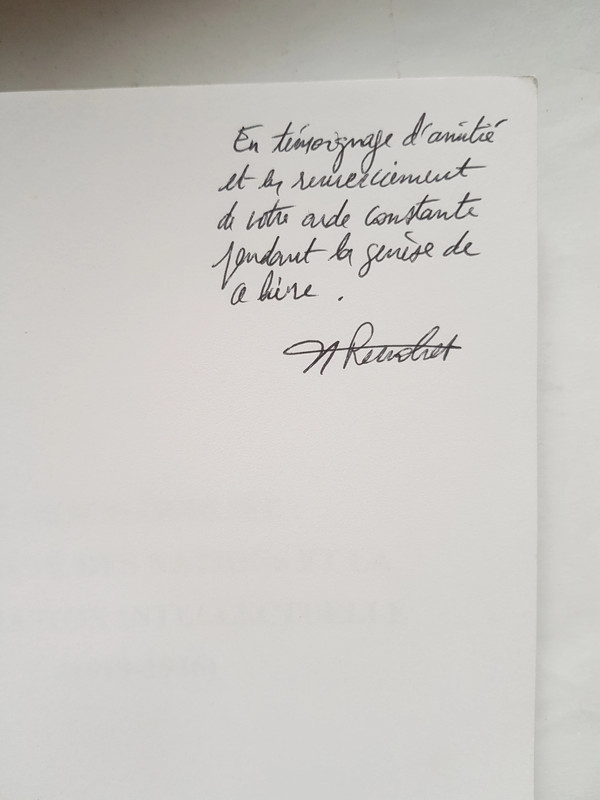 En témoignage d'amitié
et en remerciement
de votre aide constante
pendant la genèse de
ce livre.